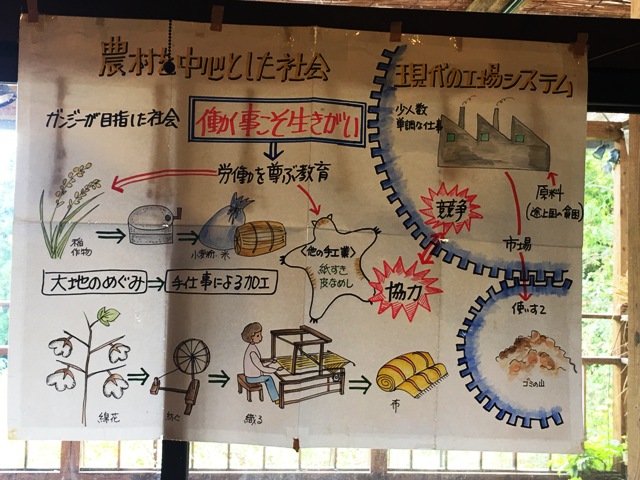 農村を中心とした社会
ガンジーが目指した社会
働く事こそ生きがい
労働を尊ぶ教育
稲
作物
小麦粉・米
大地のめぐみ
手仕事による加工
〈他の手工業〉
紙すき
皮なめし
綿花
紡ぐ
織る
布
現代の工場システム
少人数
単調な仕事
競争
協力
原料
(途上国の貧困)
市場
使いすて
ゴミの山